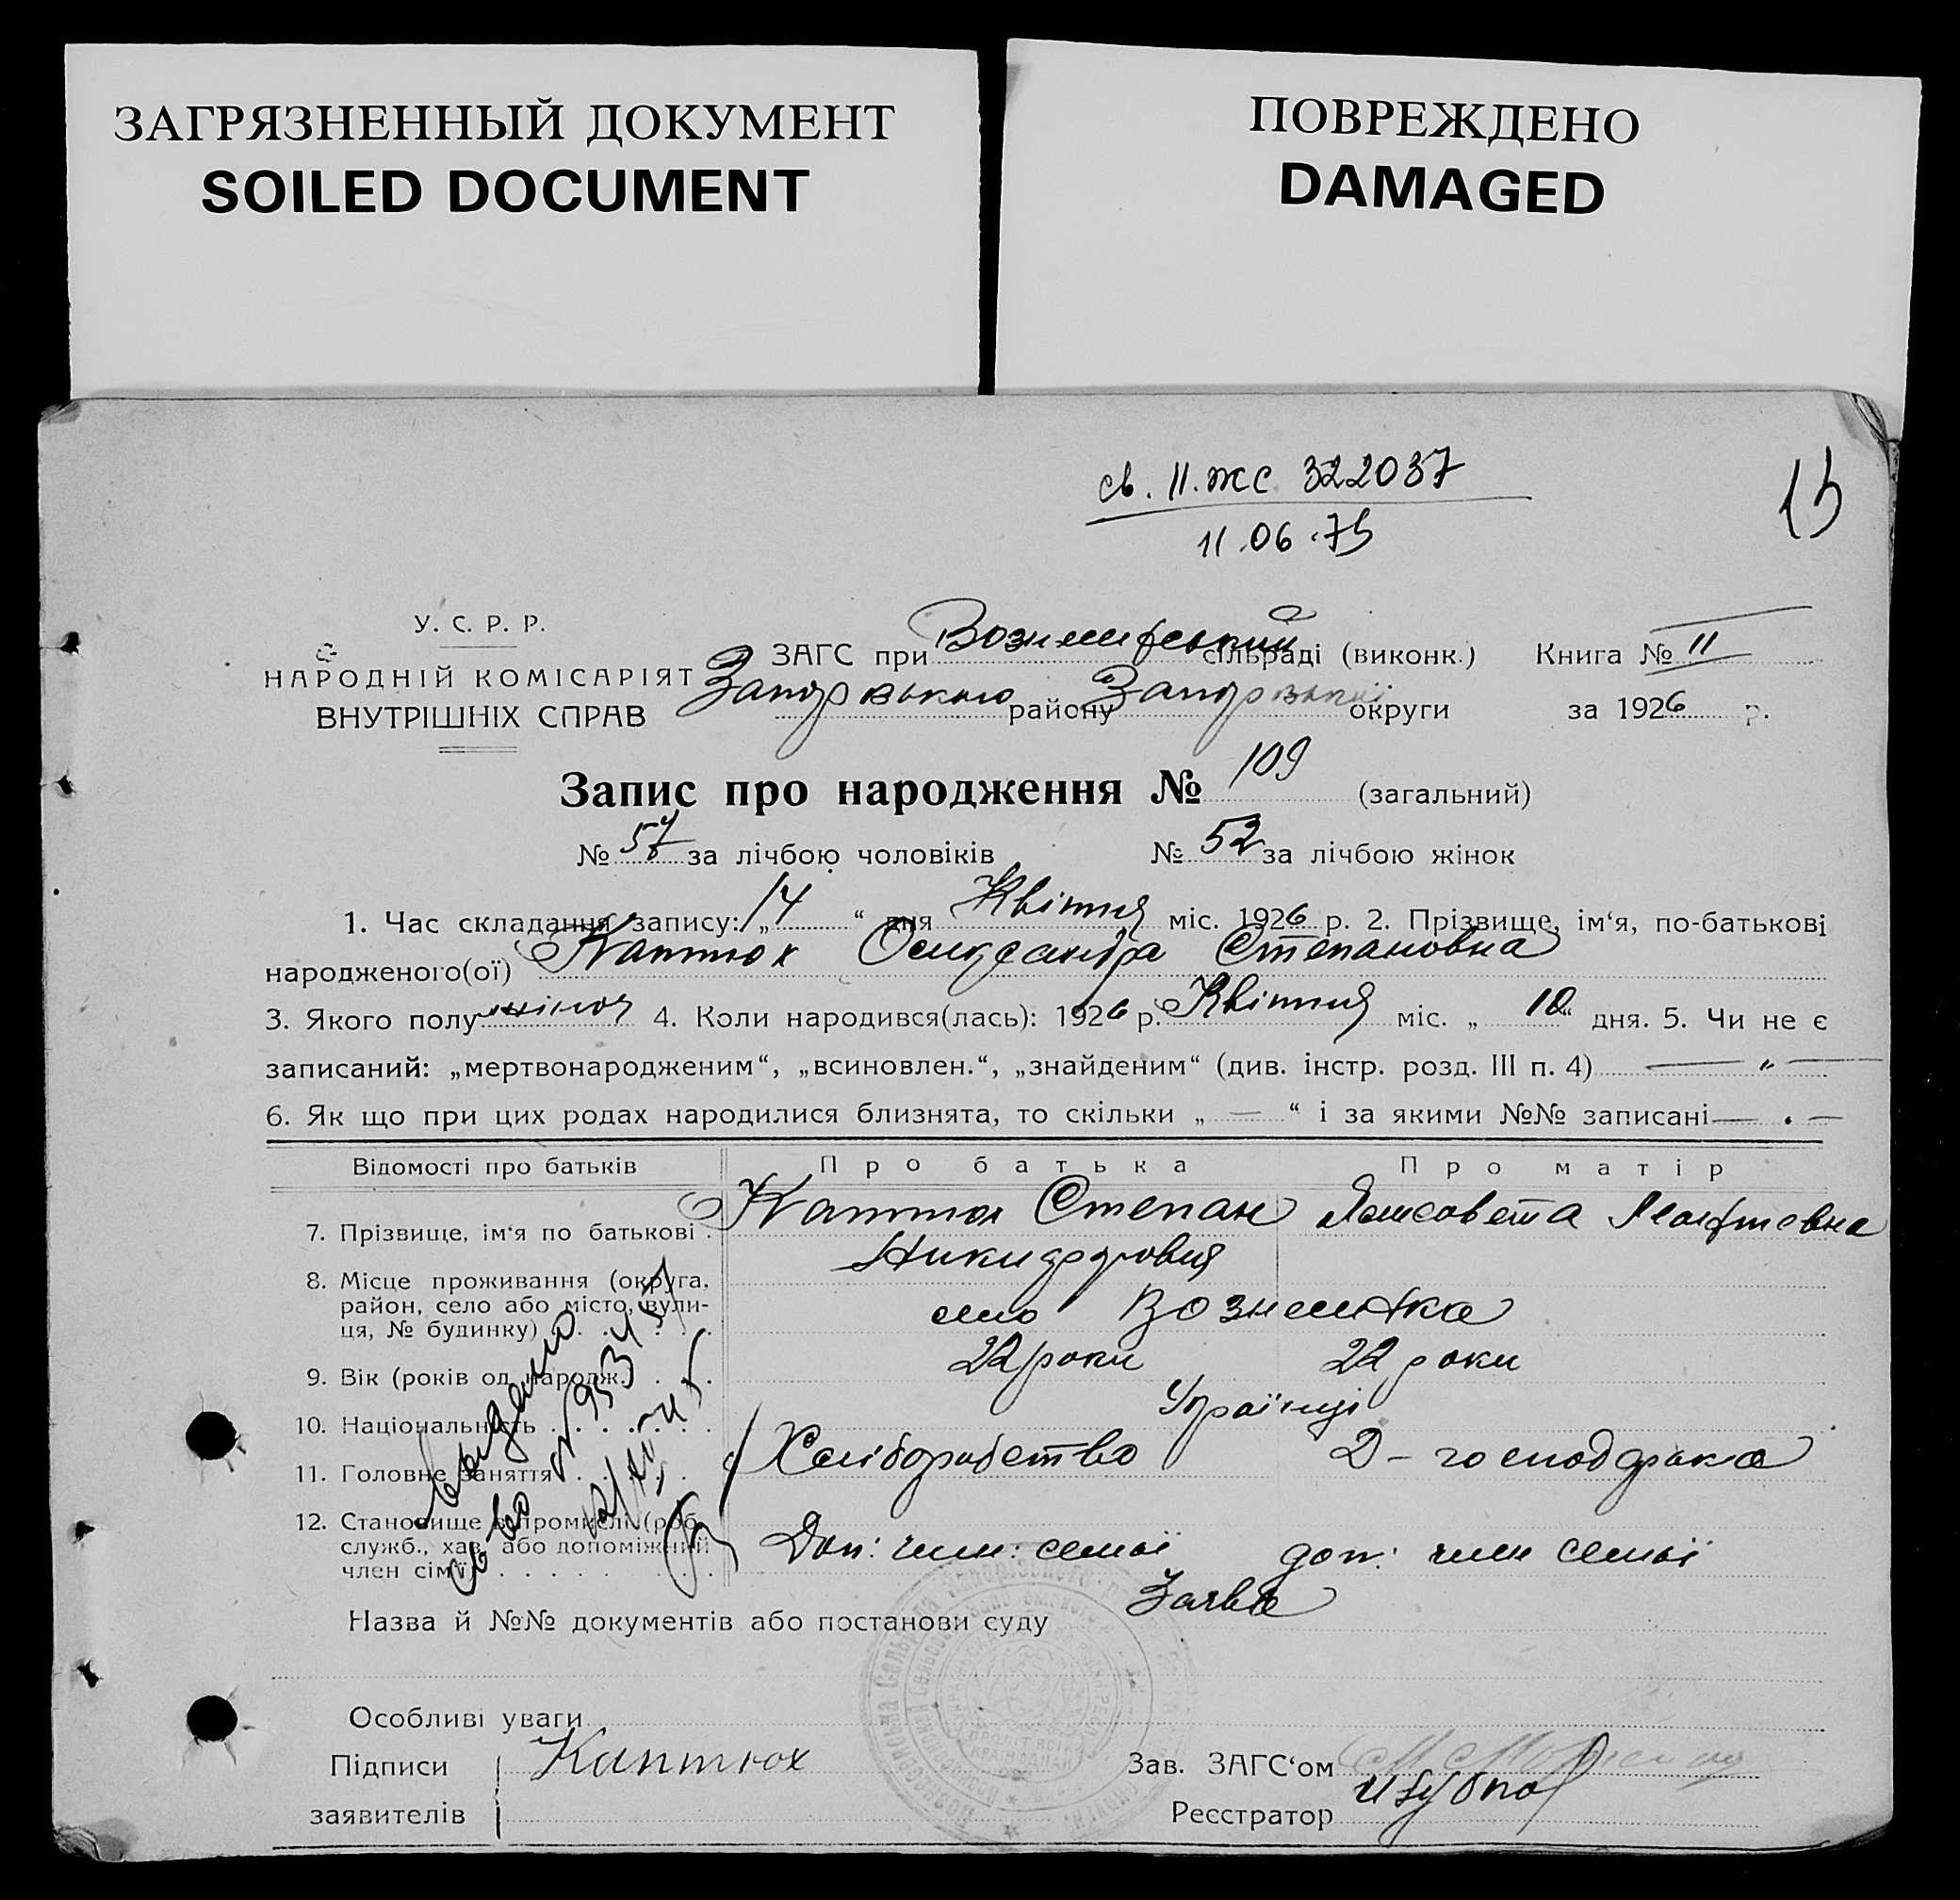 ЗАГРЯЗНЕННЫЙ ДОКУМЕНТ
SOILED DOCUMENT
ПОВРЕЖДЕНО
DAMAGED
св. II.ЖС 322037
11.06.75
15
У. С. Р. Р.
НАРОДНІЙ КОМІСАРІЯТ
ВНУТРІШНІХ СПРАВ
ЗАГС при сільраді (виконк.) Книга № II
району округи за 1926 р.
Запис про народження № 109 (загальний)
№ 57 за лічбою чоловіків № 52 за лічбою жінок
1. Час складання запису: „14“ дня Квітня міс. 1926 р. 2. Прізвище, ім‘я, по-батькові
народженого(ої) Каптюх Олександра Степановна
3. Якого полу жіноч 4. Коли народився(лась): 1926 р. Квітня міс. „10“ дня. 5. Чи не є
записаний: „мертвонародженим“, „всиновлен.“, „знайденим“ (див. інстр. розд. III п. 4) — „ —
6. Як що при цих родах народилися близнята, то скільки „ — “ і за якими №№ записані — . —
Відомості про батьків Про батька Про матір
7. Прізвище, ім‘я по батькові . Каптюх Степан
8. Місце проживання (округа,
район, село або місто, вули-
ця, № будинку) село Вознесенка
9. Вік (років од народж. 22 роки 22 роки
10. Національність Українці
11. Головне заняття Хліборобство Д-господарка
12. Становище в промислі (роб.
служб., хаз. або допоміжний
член сім‘ї) Доп: член: семьї доп: член семьї
Назва й №№ документів або постанови суду Заява
Особливі уваги
Підписи Каптюх Зав. ЗАГС‘ом
заявителів Реєстратор